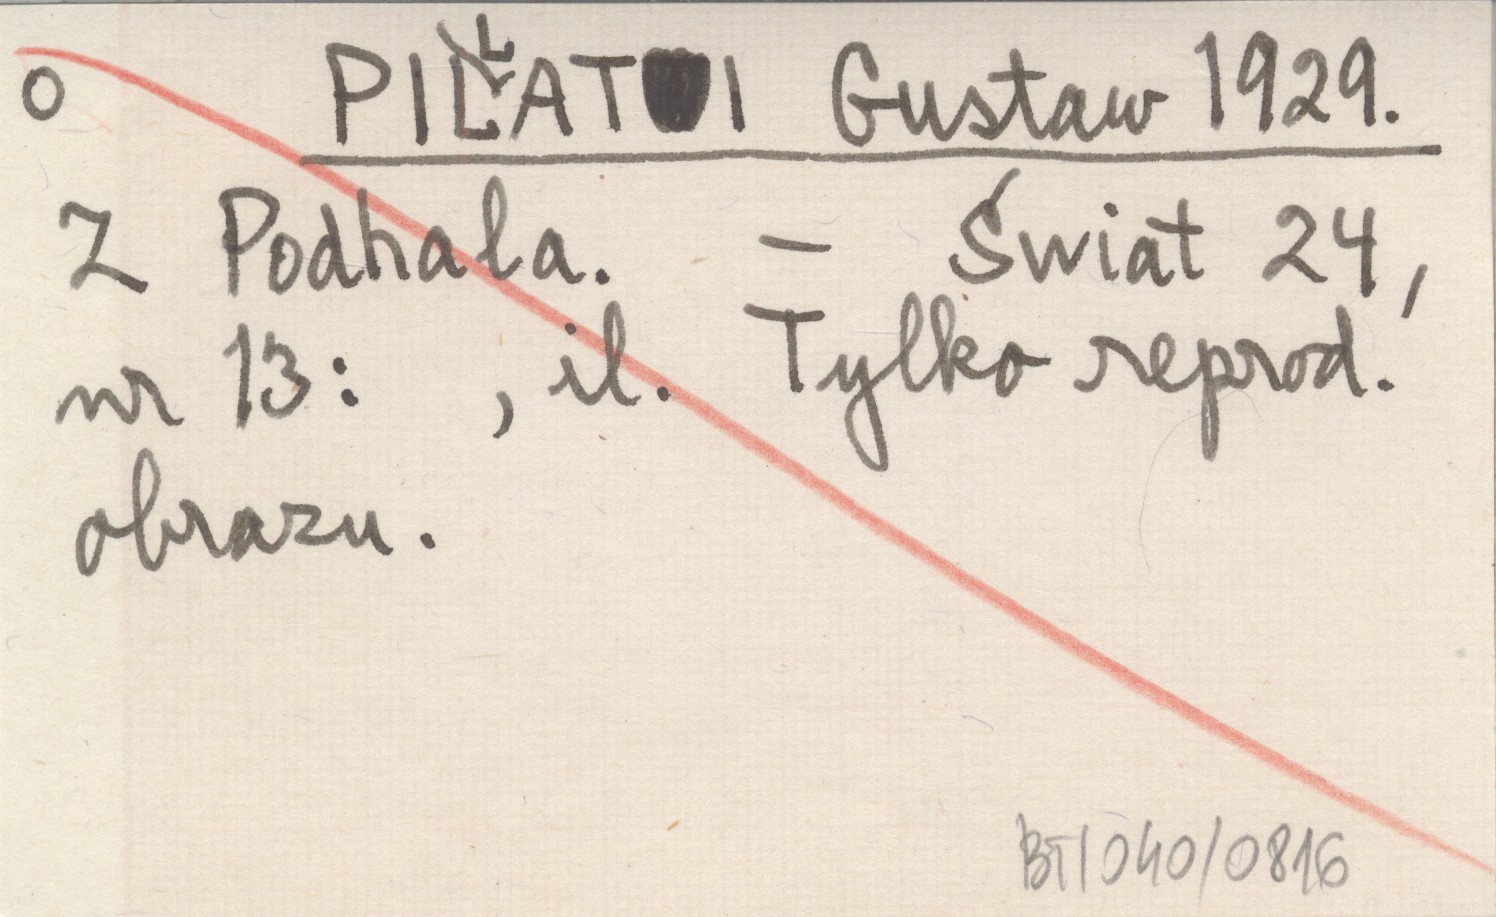 o PIŁATI Gustaw 1929.
Z Podhala. – Świat 24,
nr 13: , il. Tylko reprod.
obrazu.
BT/040/0816